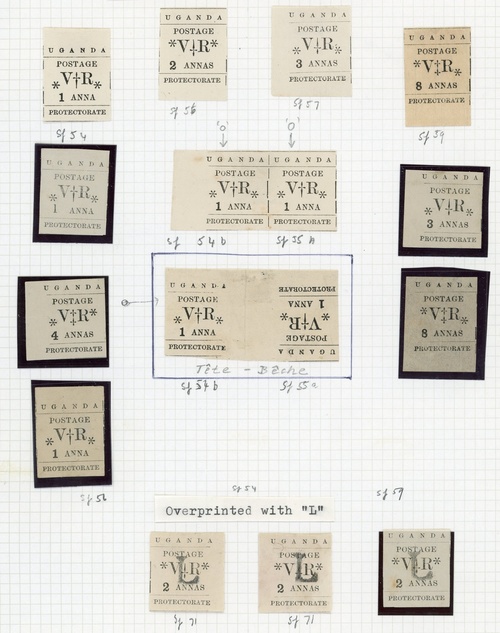 UGANDA
POSTAGE
V†R
1 ANNA
PROTECTORATE
Sf 54
UGANDA
POSTAGE
*V‡R*
2 ANNAS
PROTECTORATE
Sf 56
UGANDA
POSTAGE
*V‡R*
3 ANNAS
PROTECTORATE
Sf 57
UGANDA
POSTAGE
*V‡R*
8 ANNAS
PROTECTORATE
Sf 59
UGANDA
POSTAGE
*V†R*
1 ANNA
PROTECTORATE
'O'
'O'
UGANDA
POSTAGE
*V†R*
1 ANNA
PROTECTORATE
UGANDA
POSTAGE
*V†R*
1 ANNA
PROTECTORATE
Sf 54 b
Sf 55 a
UGANDA
POSTAGE
*V‡R*
3 ANNAS
PROTECTORATE
UGANDA
POSTAGE
*V‡R*
4 ANNAS
PROTECTORATE
UGANDA
POSTAGE
*V†R*
1 ANNA
PROTECTORATE
UGANDA
POSTAGE
*V†R*
1 ANNA
PROTECTORATE
Tête - Bêche
Sf 54 b
Sf 55a
UGANDA
POSTAGE
*V‡R*
8 ANNAS
PROTECTORATE
UGANDA
POSTAGE
*V†R*
1 ANNA
PROTECTORATE
Sf 56
Sf 54
Sf 59
Overprinted with "L"
UGANDA
POSTAGE
*V‡R*
L
2 ANNAS
PROTECTORATE
Sf 71
UGANDA
POSTAGE
*V‡R*
L
2 ANNAS
PROTECTORATE
Sf 71
UGANDA
POSTAGE
*V‡R*
L
2 ANNAS
PROTECTORATE